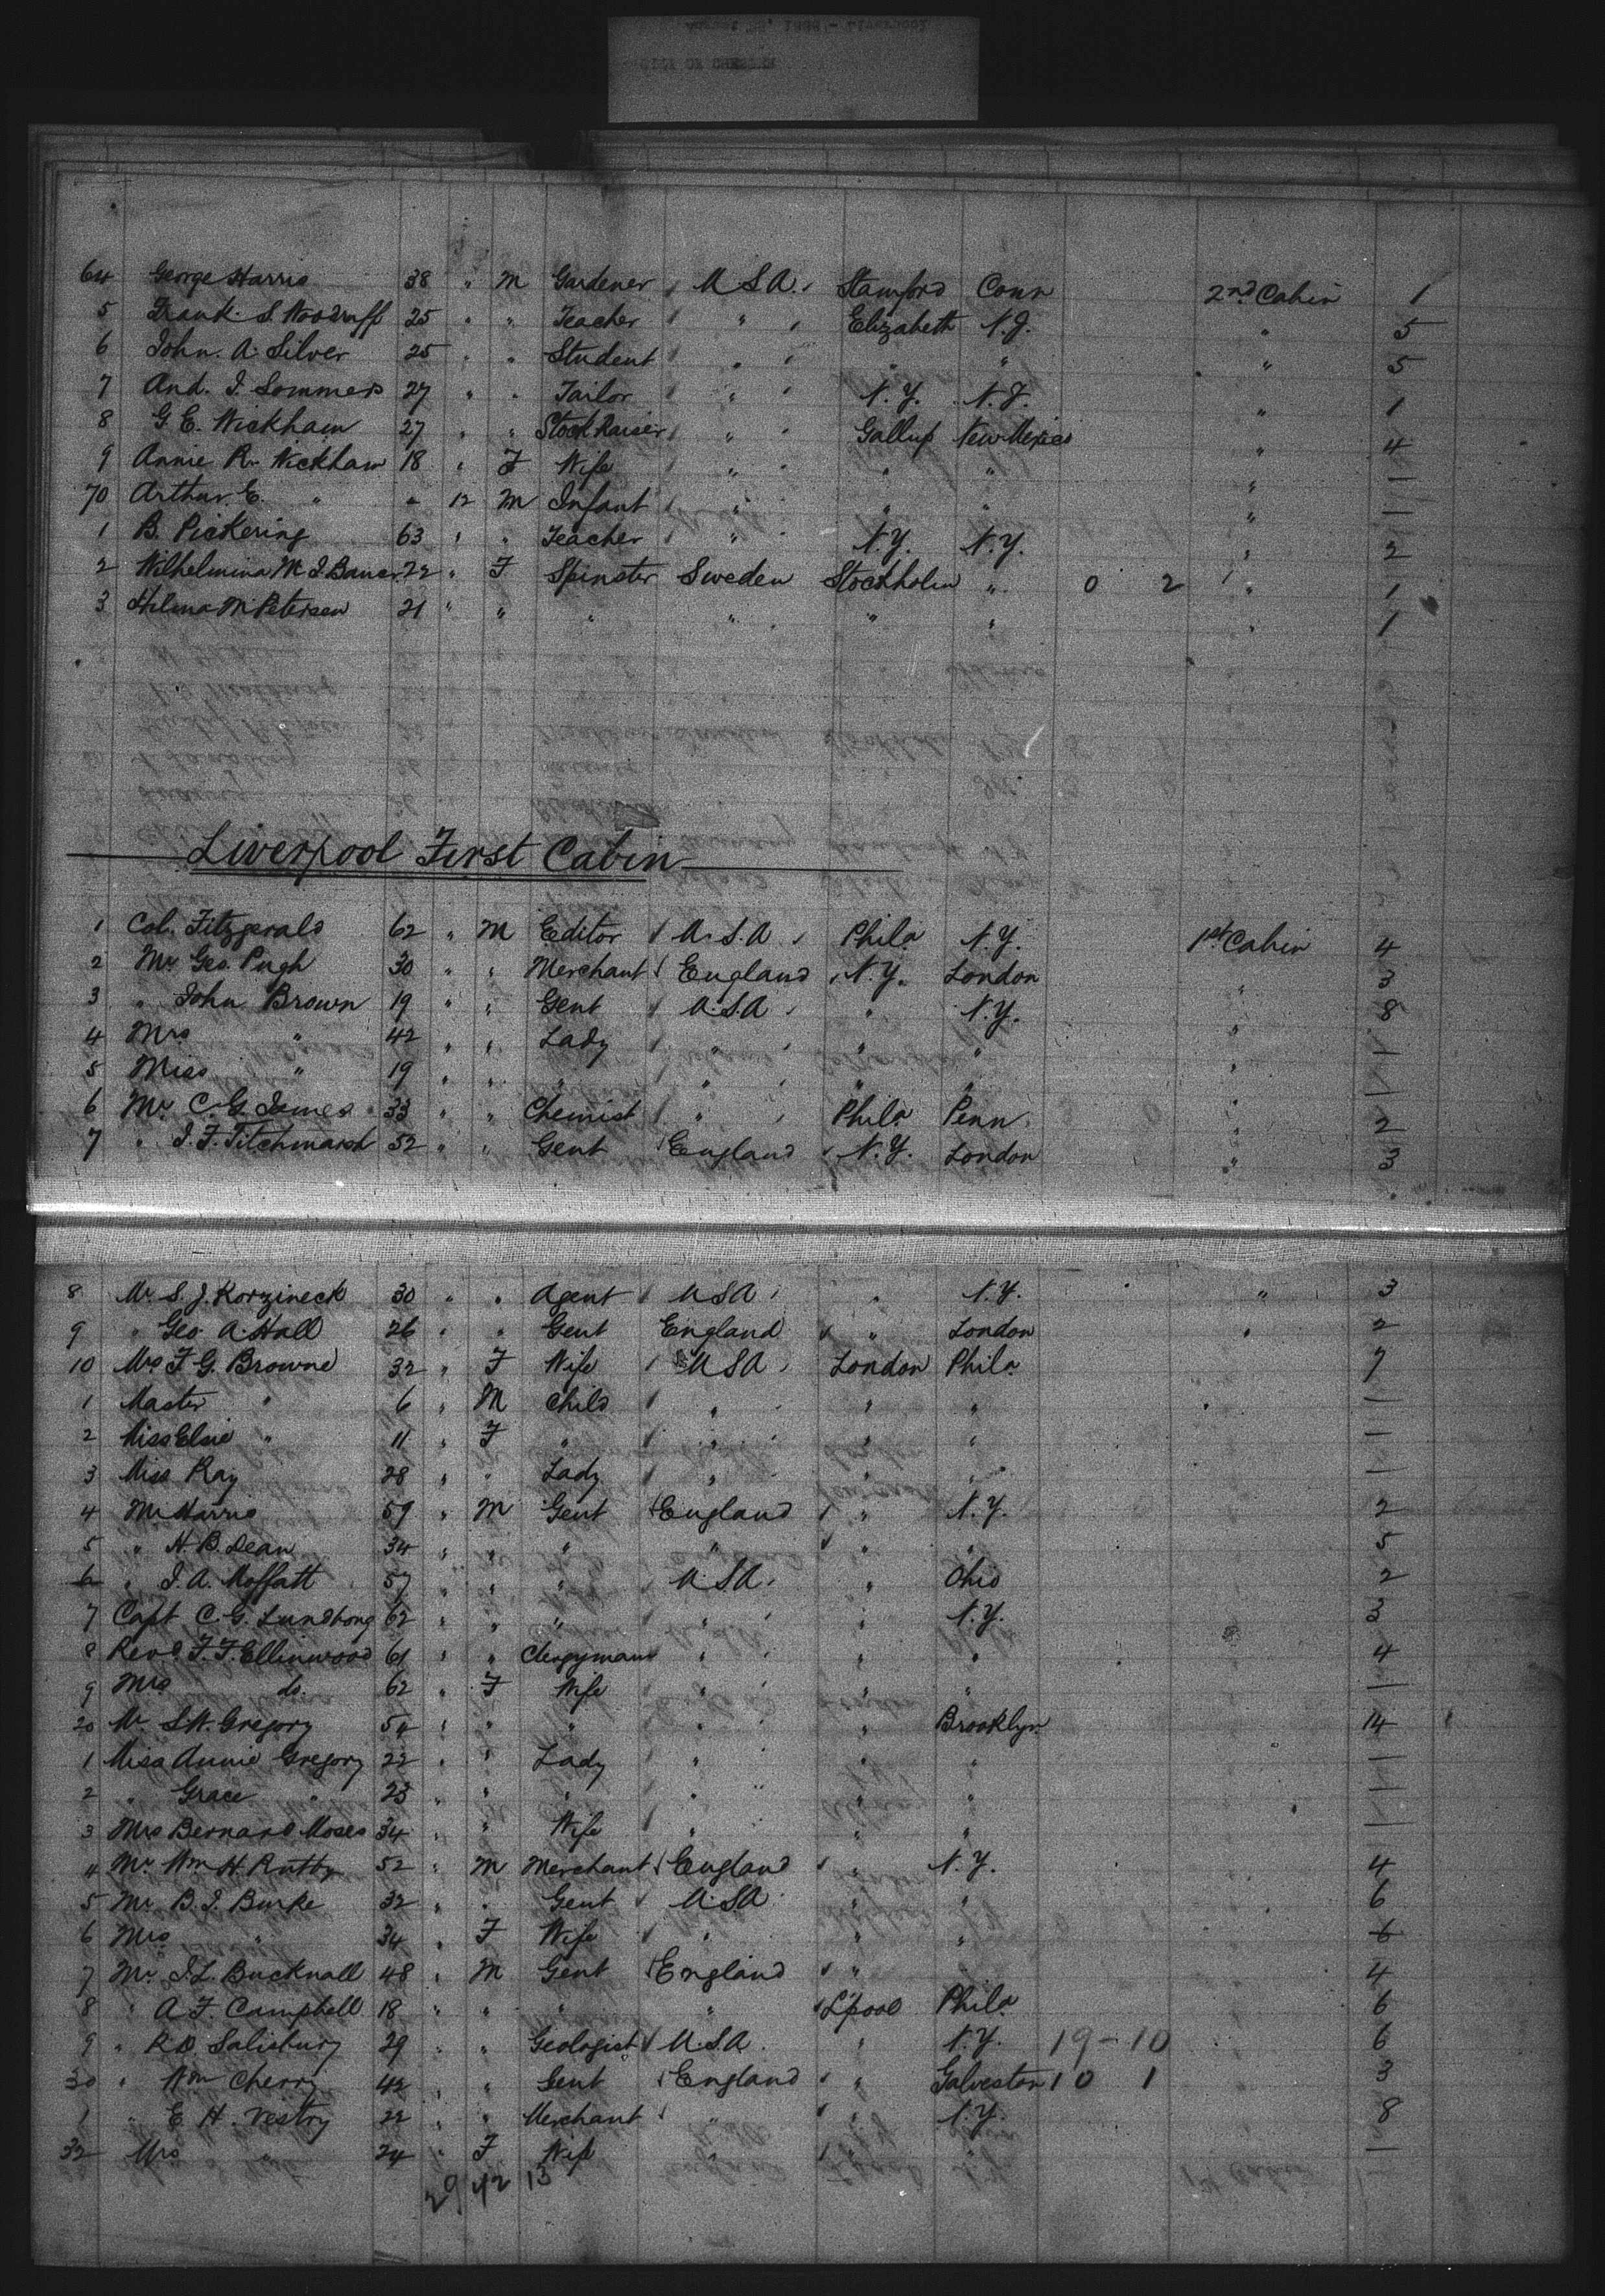 64 George Harris 38 " M Gardener U S A. Stamford Conn 2nd Cabin 1
5 Frank. S. Woodruff 25 " " Teacher " Elizabeth N.J. " 5
6 John. A. Silver 25 " " Student " " " " 5
7 And. I. Sommers 27 " " Tailor " N.Y. N.J. " 1
8 G. E. Wickham 27 " " Stock Raiser " Gallup New Mexico " 4
9 Annie R. Wickham 18 " F Wife " " " " —
70 Arthur E. " " 12 M Infant " " " " —
1 B. Pickering 63 " " Teacher " N.Y. N.Y. " 2
2 Wilhelmina M. I. Bauer 22 " F Spinster Sweden Stockholm " 0 2 " 1
3 Hilma M. Petersen 21 " " " " " " " 1
Liverpool First Cabin
1 Col. Fitzgerald 62 " M Editor U.S.A. Phila N.Y. 1st Cabin 4
2 Mr Geo. Pugh 30 " " Merchant England N.Y. London " 3
3 " John Brown 19 " " Gent U.S.A " N.Y. " 8
4 Mrs " 42 " " Lady " " " " —
5 Miss " 19 " " " " " " " —
6 Mr C. G. James 33 " " Chemist " Phila Penn " 2
7 " J. F. Titchmarsh 52 " " Gent England N.Y. London " 3
8 Mr S. J. Korzineck 30 " " Agent USA " N.Y. " 3
9 " Geo. A. Hall 26 " " Gent England " London " 2
10 Mrs F G. Browne 32 " F Wife USA London Phila 7
1 Master " 6 " M Child " " " —
2 Miss Elsie " 11 " F " " " " —
3 Miss Ray 28 " " Lady " " " —
4 Mr Harris 59 " M Gent England " N.Y. 2
5 " H. B. Dean 34 " " " " " " 5
6 " J. A. Moffatt 57 " " " U.S.A. " Ohio 2
7 Capt C. G. Lundborg 62 " " " " " N.Y. 3
8 Revd F. F. Ellinwood 61 " " Clergyman " " " 4
9 Mrs do. 62 " F Wife " " " —
20 Mr S. W. Gregory 54 " " " " " Brooklyn 14
1 Miss Annie Gregory 22 " " Lady " " " —
2 " Grace " 23 " " " " " " —
3 Mrs Bernard Moses 34 " " Wife " " " —
4 Mr Wm H. Rutty 52 " M Merchant England " N.Y. 4
5 Mr B. J. Burke 32 " " Gent U.S.A " " 6
6 Mrs " 34 " F Wife " " " 6
7 Mr J. L. Bucknall 48 " M Gent England " " 4
8 " A F. Campbell 18 " " " " L'pool Phila 6
9 " R. D. Salisbury 29 " " Geologist U.S.A. " N.Y. 19-10 6
30 " Wm Cherry 42 " " Gent England " Galveston 10 1 3
1 " E. H. Vestry 22 " " Merchant " " N.Y. 8
32 Mrs " 24 " F Wife " " " —
29 42 13